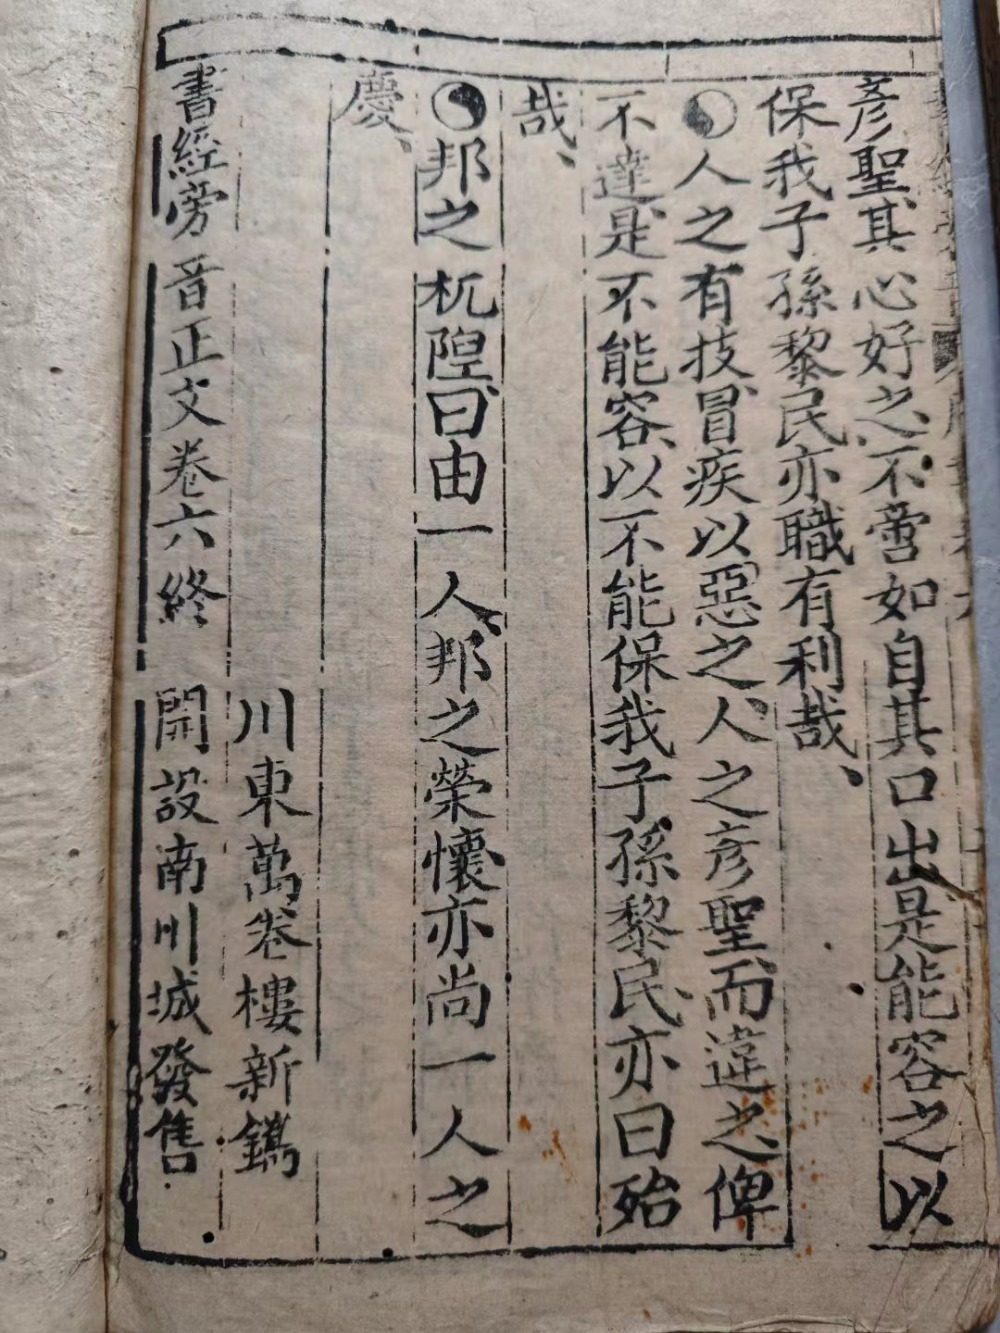 彥聖、其心好之、不啻如自其口出、是能容之、以
保我子孫黎民、亦職有利哉、
人之有技、冒疾以惡之、人之彥聖、而違之、俾
不達、是不能容、以不能保我子孫黎民、亦曰殆
哉、
邦之杌隉、曰由一人、邦之榮懷、亦尚一人之
慶、
川東萬卷樓新鐫
書經旁音正文卷六終 開設南川城發售